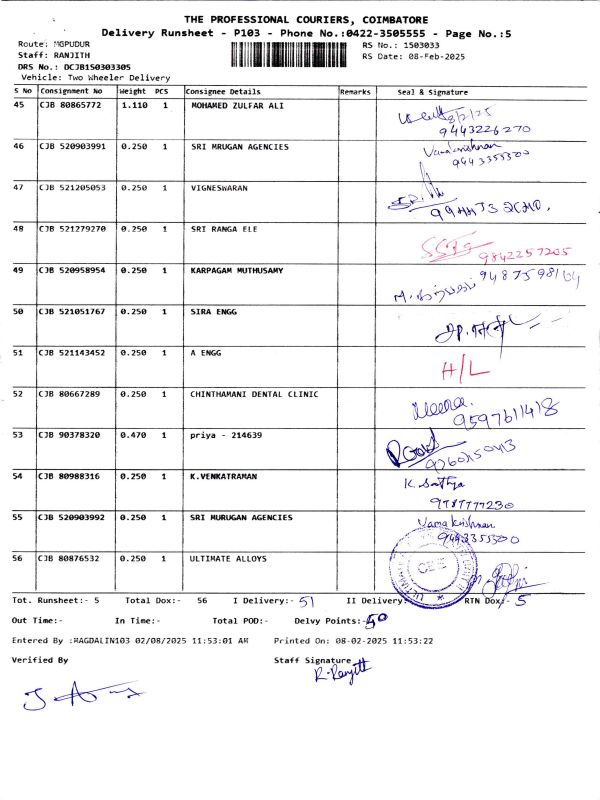 THE PROFESSIONAL COURIERS, COIMBATORE
Delivery Runsheet - P103 - Phone No.:0422-3505555 - Page No.:5
Route: MGPUDUR
RS No.: 1503033
Staff: RANJITH
RS Date: 08-Feb-2025
DRS No.: DCJB150303305
Vehicle: Two Wheeler Delivery
S No Consignment No Weight PCS Consignee Details Remarks Seal & Signature
45 CJB 80865772 1.110 1 MOHAMED ZULFAR ALI
8/2/25
9443226270
46 CJB 520903991 0.250 1 SRI MRUGAN AGENCIES Vamakrishnan
9443355300
47 CJB 521205053 0.250 1 VIGNESWARAN
48 CJB 521279270 0.250 1 SRI RANGA ELE
9842257205
49 CJB 520958954 0.250 1 KARPAGAM MUTHUSAMY 9487598164
50 CJB 521051767 0.250 1 SIRA ENGG
51 CJB 521143452 0.250 1 A ENGG H/L
52 CJB 80667289 0.250 1 CHINTHAMANI DENTAL CLINIC Meena.
9597611418
53 CJB 90378320 0.470 1 priya - 214639
54 CJB 80988316 0.250 1 K.VENKATRAMAN K. Sathya
9787777230
55 CJB 520903992 0.250 1 SRI MURUGAN AGENCIES Vamakrishnan
9443355300
56 CJB 80876532 0.250 1 ULTIMATE ALLOYS
CBE
Tot. Runsheet:- 5 Total Dox:- 56 I Delivery:- 51 II Delivery:- RTN Dox:- 5
Out Time:- In Time:- Total POD:- Delvy Points:- 50
Entered By :MAGDALIN103 02/08/2025 11:53:01 AM Printed On: 08-02-2025 11:53:22
Verified By Staff Signature
R. Ranjith